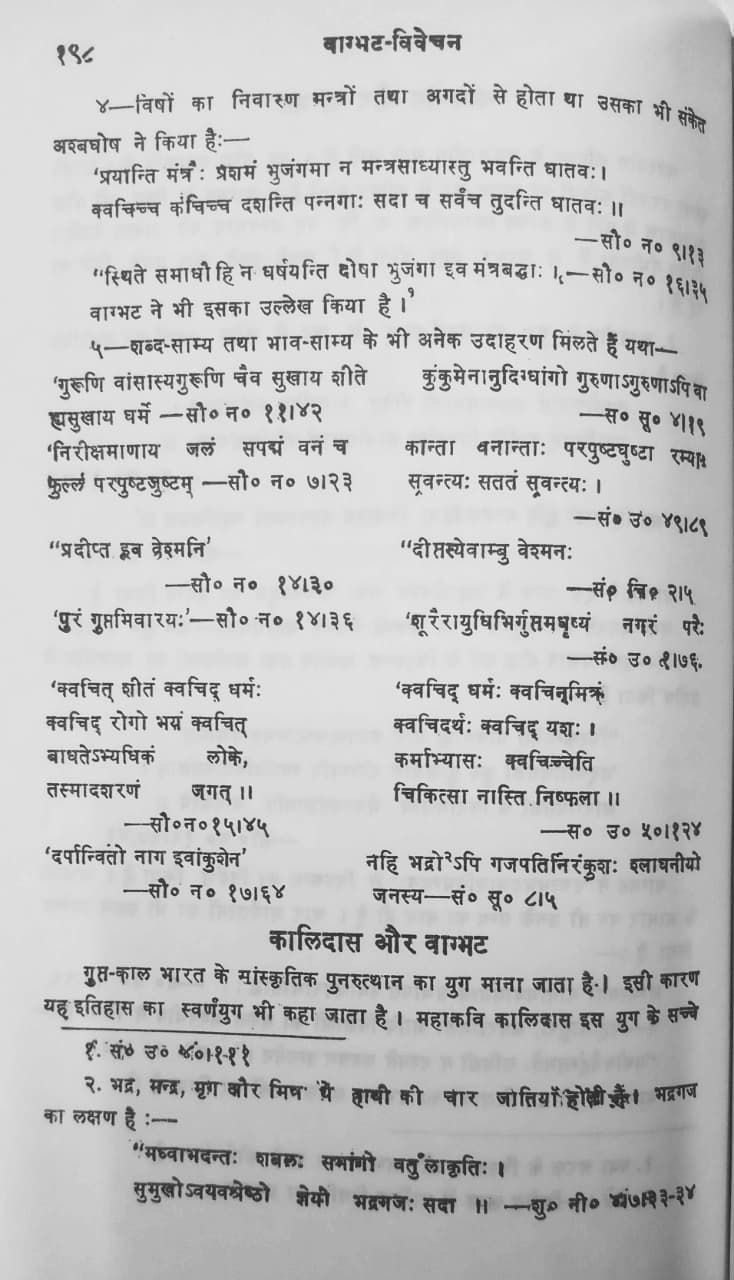 १९८
वाग्भट-विवेचन
४—विषों का निवारण मन्त्रों तथा अगदों से होता था उसका भी संकेत
अश्वघोष ने किया हैः—
'प्रयान्ति मंत्रैः प्रशमं भुजंगमा न मन्त्रसाध्यास्तु भवन्ति धातवः।
क्वचिच्च कंचिच्च दशन्ति पन्नगाः सदा च सर्वंच तुदन्ति धातवः॥
—सौ० न० ९।१३
"स्थिते समाधौ हि न धर्षयन्ति दोषा भुजंगा इव मंत्रबद्धाः।—सौ० न० १६।३५
वाग्भट ने भी इसका उल्लेख किया है।१
५—शब्द-साम्य तथा भाव-साम्य के भी अनेक उदाहरण मिलते हैं यथा—
'गुरूणि वांसास्यगुरूणि चैव सुखाय शीते कुंकुमेनानुदिग्धांगो गुरुणाऽगुरुणाऽपि वा
ह्यसुखाय धर्मे —सौ० न० ११।४२ —स० सू० ४।१९
'निरीक्षमाणाय जलं सपद्मं वनं च कान्ता वनान्ताः परपुष्टघुष्टा रम्याः
फुल्लं परपुष्टजुष्टम् —सौ० न० ७।२३ स्रवन्त्यः सततं स्रवन्त्यः।
—सं० उ० ४९।८९
"प्रदीप्त इव वेश्मनि' "दीप्तस्येवाम्बु वेश्मनः
—सौ० न० १४।३० —सं० चि० २।५
'पुरं गुप्तमिवारयः'—सौ० न० १४।३६ 'शूरैरायुधिभिर्गुप्तमधृष्यं नगरं परैः
—सं० उ० १।७६.
'क्वचित् शीतं क्वचिद् धर्मः 'क्वचिद् धर्मः क्वचिन्मित्रं
क्वचिद् रोगो भयं क्वचित् क्वचिदर्थः क्वचिद् यशः।
बाधतेऽभ्यधिकं लोके, कर्माभ्यासः क्वचिच्चेति
तस्मादशरणं जगत्॥ चिकित्सा नास्ति निष्फला॥
—सौ०न०१५।४५ —स० उ० ५०।१२४
'दर्पान्वितो नाग इवांकुशेन' नहि भद्रो२ऽपि गजपतिर्निरंकुशः श्लाघनीयो
—सौ० न० १७।६४ जनस्य—सं० सू० ८।५
कालिदास और वाग्भट
गुप्त-काल भारत के सांस्कृतिक पुनरुत्थान का युग माना जाता है। इसी कारण
यह इतिहास का स्वर्णयुग भी कहा जाता है। महाकवि कालिदास इस युग के सच्चे
१. सं० उ० ४०।१११
२. भद्र, मन्द्र, मृग और मिश्र ये हाथी की चार जातियाँ होती हैं। भद्रगज
का लक्षण है :—
"मध्वाभदन्तः शबलः समांगो वर्तुलाकृतिः।
सुमुखोऽवयवश्रेष्ठो ज्ञेयो भद्रगजः सदा॥ —शु० नी० ४।७।३३-३४